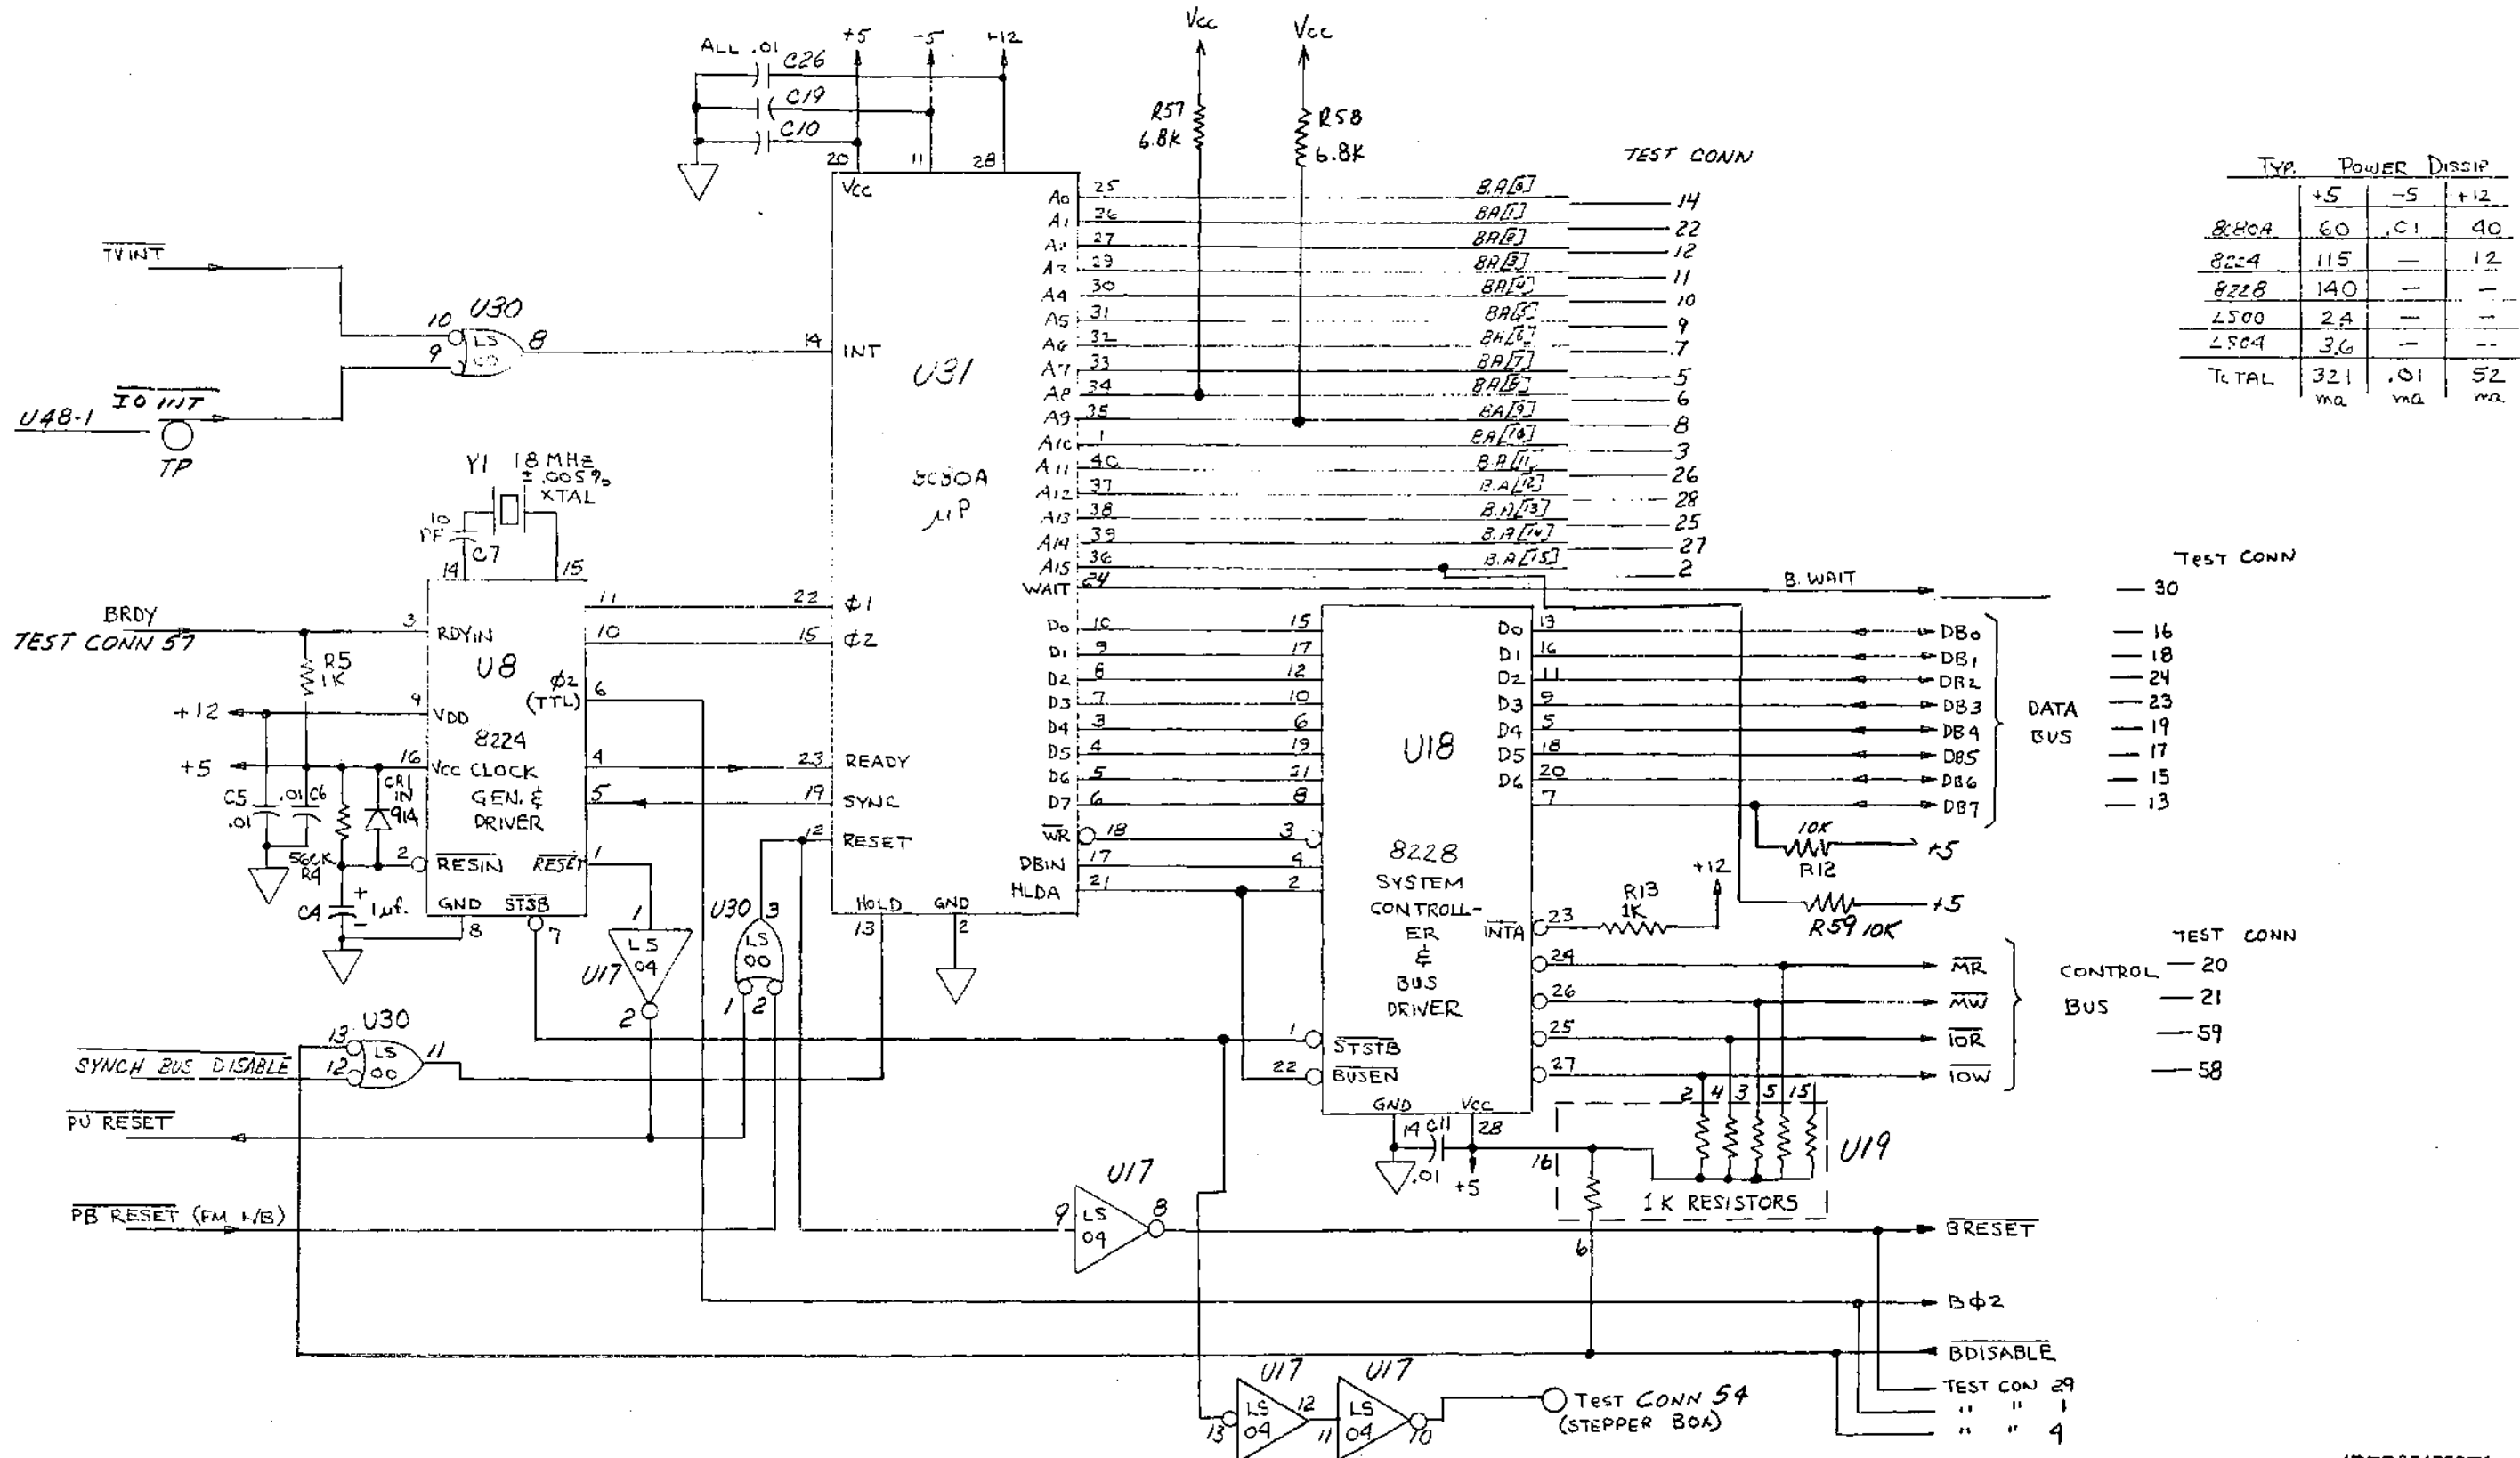 ALL .01
C26
C19
C10
+5
-5
+12
20
11
28
Vcc
Vcc
R57
6.8K
R58
6.8K
TEST CONN
TYP. POWER DISSIP
+5 -5 +12
8080A 60 .01 40
8224 115 — 12
8228 140 — —
LS00 2.4 — —
LS04 3.6 — --
TOTAL 321 .01 52
ma ma ma
TVINT
10
9
U30
LS
00
8
IO INT
U48-1
TP
14 INT
Vcc
U31
8080A
μP
A0 25 BA[0] 14
A1 26 BA[1] 22
A2 27 BA[2] 12
A3 29 BA[3] 11
A4 30 BA[4] 10
A5 31 BA[5] 9
A6 32 BA[6] 7
A7 33 BA[7] 5
A8 34 BA[8] 6
A9 35 BA[9] 8
A10 1 BA[10] 3
A11 40 BA[11] 26
A12 37 BA[12] 28
A13 38 BA[13] 25
A14 39 BA[14] 27
A15 36 BA[15] 2
WAIT 24 B. WAIT
TEST CONN
30
Y1 18 MHZ
± .005%
XTAL
10
PF
C7
14
15
BRDY
TEST CONN 57
3 RDYIN
R5
1K
U8
11 22 φ1
10 15 φ2
φ2
(TTL)
6
+12
9 VDD
8224
CLOCK
GEN. &
DRIVER
+5
16 Vcc
C5
.01
.01 C6
CR1
1N
914
560K
R4
2 RESIN
C4
+
1μf.
-
GND
8
STSB
7
RESET 1
4 23 READY
5 19 SYNC
12 RESET
HOLD
13
GND
2
D0 10 15
D1 9 17
D2 8 12
D3 7 10
D4 3 6
D5 4 19
D6 5 21
D7 6 8
WR 18 3
DBIN 17 4
HLDA 21 2
U18
8228
SYSTEM
CONTROLL-
ER
&
BUS
DRIVER
D0 13 DB0 16
D1 16 DB1 18
D2 11 DB2 24
D3 9 DB3 23
D4 5 DB4 19
D5 18 DB5 17
D6 20 DB6 15
7 DB7 13
DATA
BUS
10K
R12
+5
R59 10K
+5
+12
R13
1K
INTA 23
24 MR
26 MW
25 IOR
27 IOW
CONTROL
BUS
TEST CONN
20
21
59
58
1 STSTB
22 BUSEN
GND
14
Vcc
28
C11
.01
+5
16
2 4 3 5 15
U19
1K RESISTORS
6
1
LS
04
U17
2
U30
3
LS
00
1 2
13
12
U30
LS
00
11
SYNCH BUS DISABLE
PU RESET
PB RESET
U17
9
LS
04
8
BRESET
Bφ2
BDISABLE
TEST CON 29
" " 1
" " 4
U17
13
LS
04
12
U17
11
LS
04
10
TEST CONN 54
(STEPPER BOX)